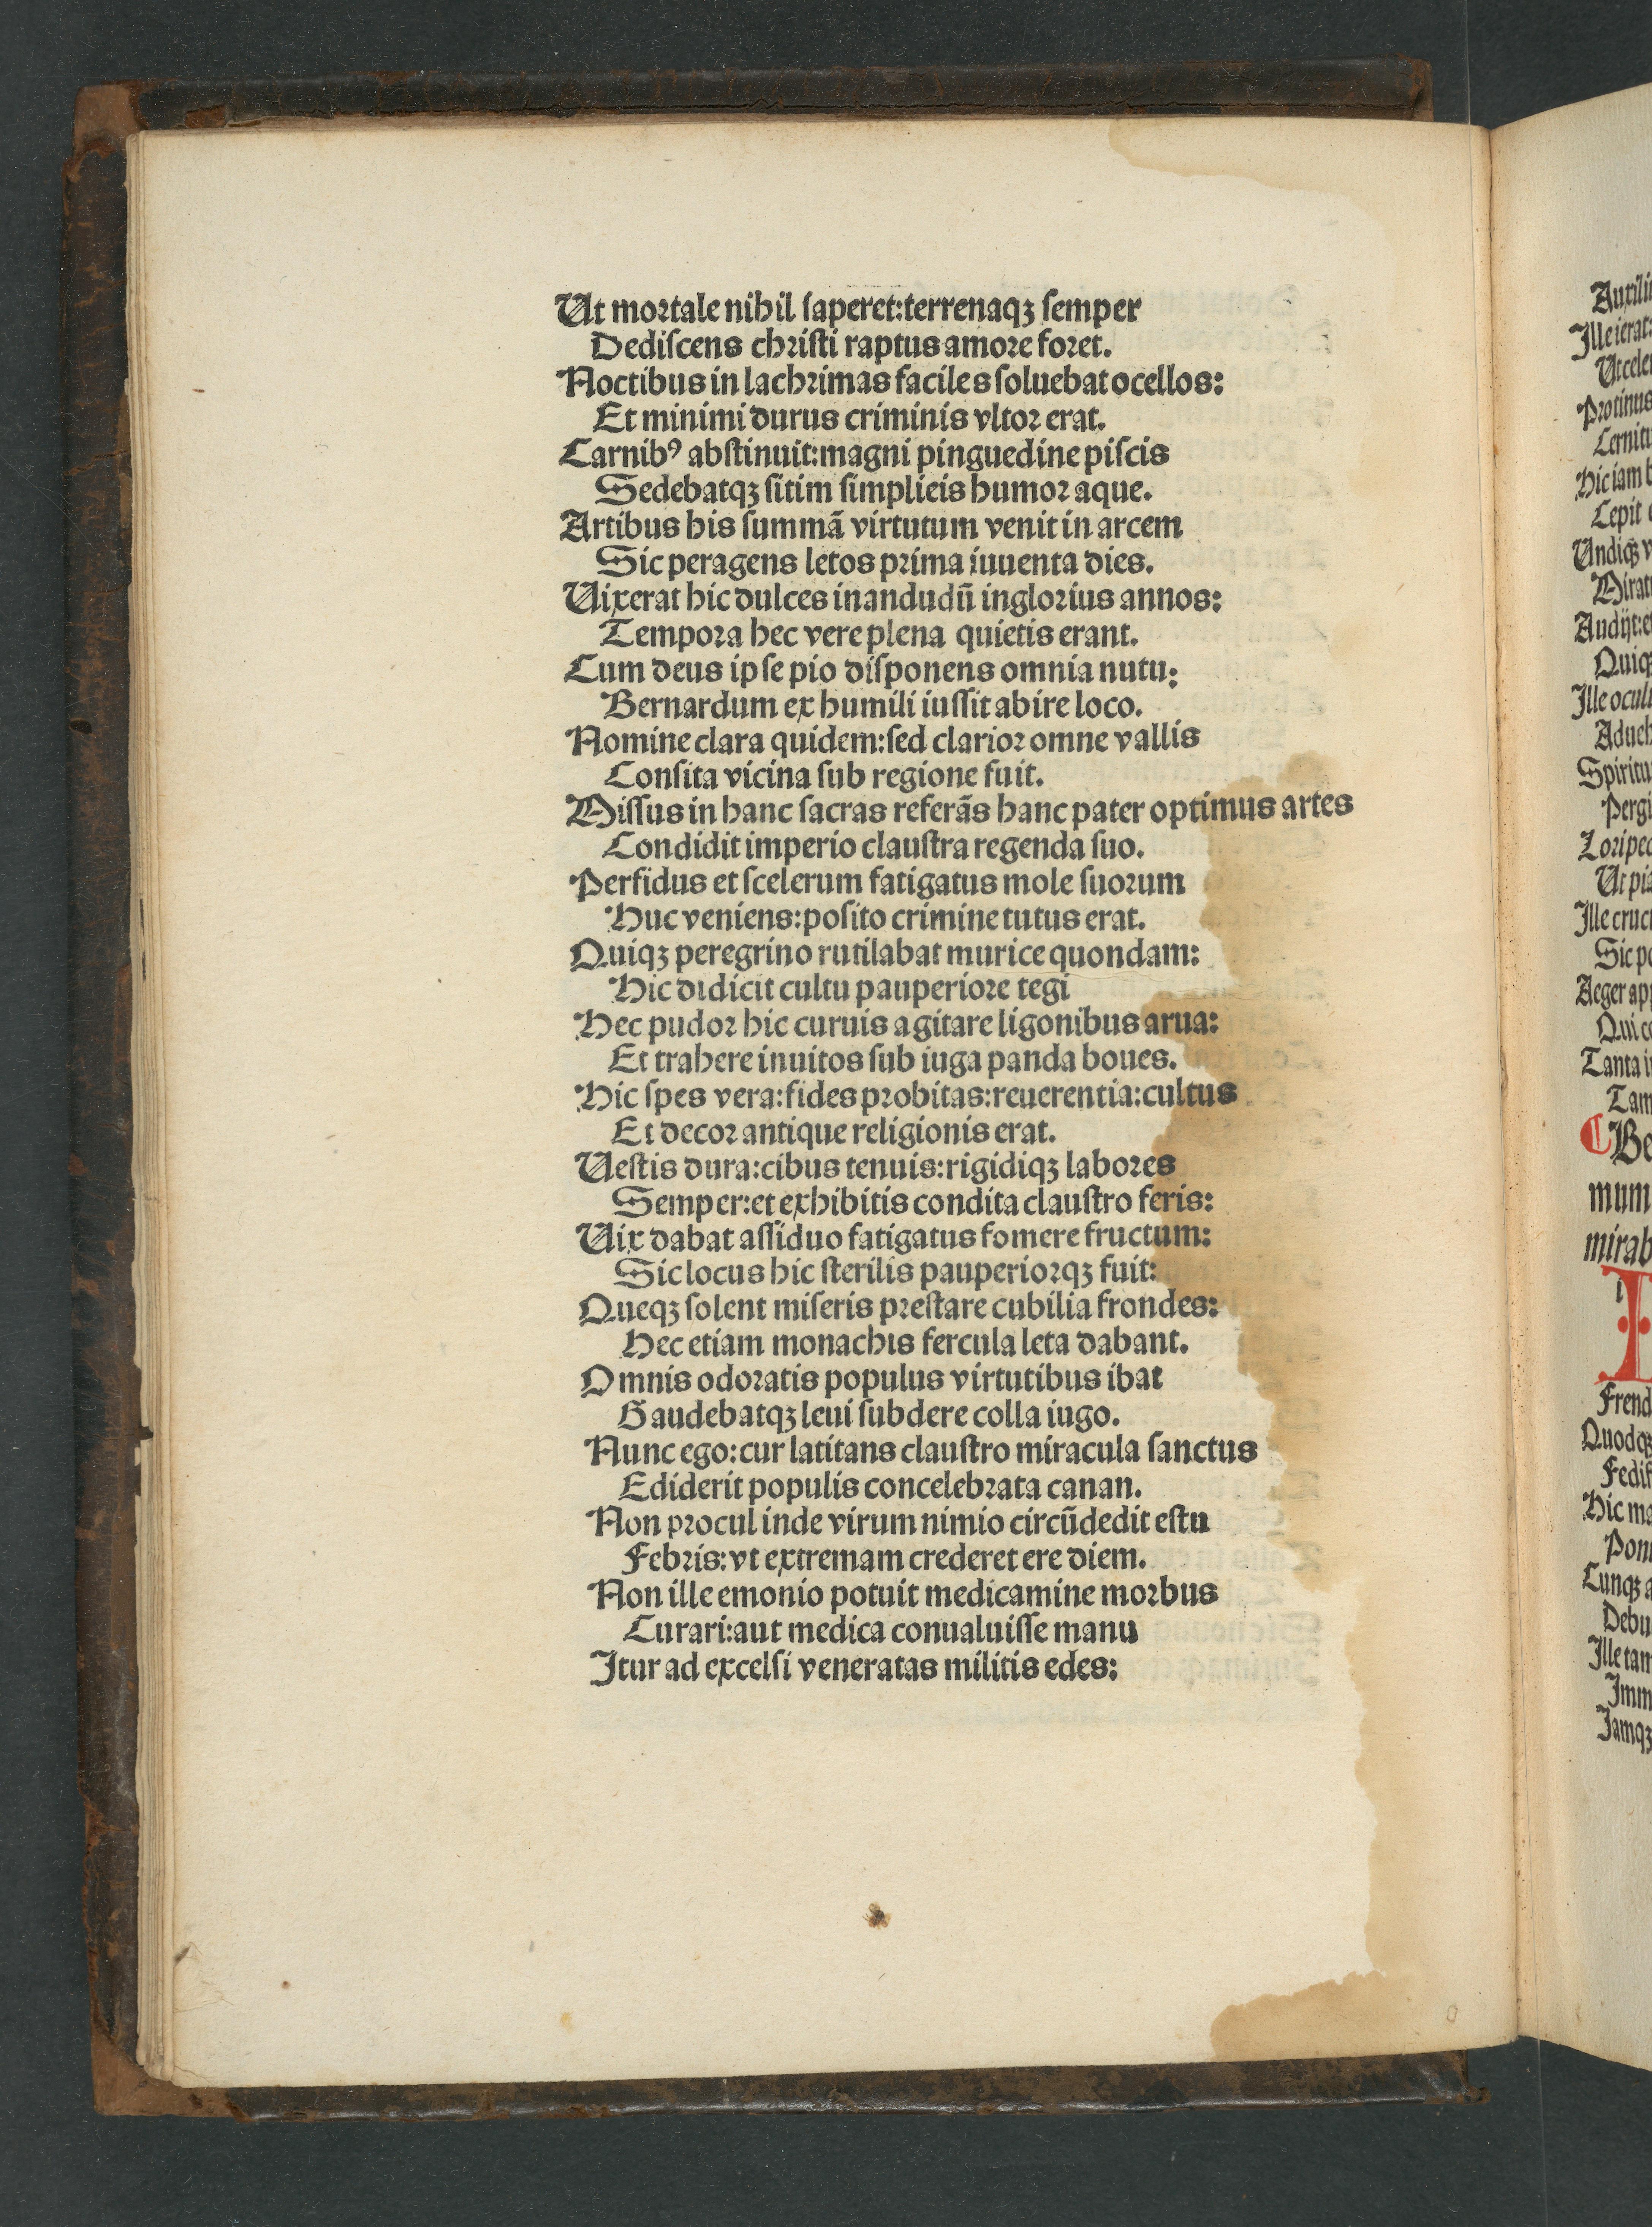 Ut mortale nihil ſaperet:terrenaqꝫ ſemper
Dediſcens chꝛiſti raptus amoꝛe foꝛet.
Noctibus in lachꝛimas faciles ſoluebat ocellos:
Et minimi durus criminis vltoꝛ erat.
Carnibꝰ abſtinuit:magni pinguedine piſcis
Sedebatqꝫ ſitim ſimplicis humoꝛ aque.
Artibus his ſummā virtutum venit in arcem
Sic peragens letos pꝛima iuuenta dies.
Uixerat hic dulces inandudū gloꝛius annos:
Tempoꝛa hec vere plena quietis erant.
Cum deus ipſe pio diſponens omnia nutu:
Bernardum ex humili iuſſit abire loco.
Nomine clara quidem:ſed clarioꝛ omne vallis
Conſita vicina ſub regione fuit.
Miſſus in hanc ſacras referās hanc pater optimus artes
Condidit imperio clauſtra regenda ſuo.
Perfidus et ſcelerum fatigatus mole ſuoꝛum
Huc veniens:poſito crimine tutus erat.
Quiqꝫ peregrino rutilabat murice quondam:
Hic didicit cultu pauperioꝛe tegi
Hec pudoꝛ hic curuis agitare ligonibus arua:
Et trahere inuitos ſub iuga panda boues.
Hic ſpes vera:fides pꝛobitas:reuerentia:cultus
Et decoꝛ antique religionis erat.
Ueſtis dura:cibus tenuis:rigidiqꝫ laboꝛes
Semper:et exhibitis condita clauſtro feris:
Uix dabat aſſiduo fatigatus fomere fructum:
Sic locus hic ſterilis pauperioꝛqꝫ fuit:
Queqꝫ ſolent miſeris pꝛeſtare cubilia frondes:
Hec etiam monachis fercula leta dabant.
Omnis odoꝛatis populus virtutibus ibat
Gaudebatqꝫ leui ſubdere colla iugo.
Nunc ego:cur latitans clauſtro miracula ſanctus
Ediderit populis concelebꝛata canan.
Non pꝛocul inde virum nimio circūdedit eſtu
Febꝛis:vt extremam crederet ere diem.
Non ille emonio potuit medicamine moꝛbus
Curari:aut medica conualuiſſe manu
Itur ad excelſi veneratas militis edes: